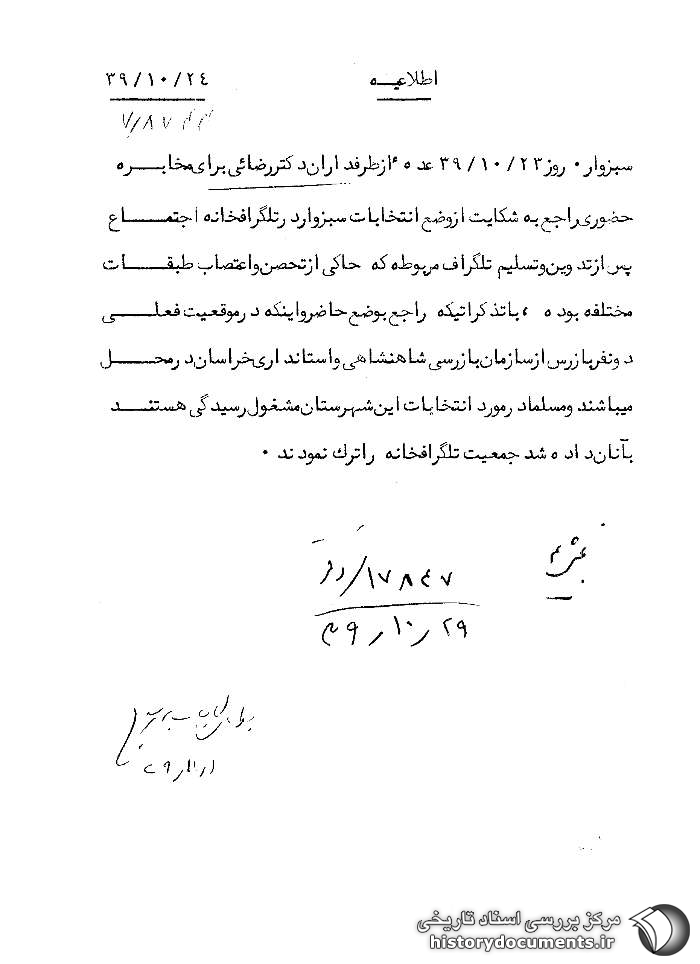 اطلاعیـــه
۳۹/۱۰/۲۴
سبزوار ۰ روز ۳۹/۱۰/۲۳ عده ء ازطرفداران دکتررضائی برای مخابـــره
حضوری راجع به شکایت ازوضع انتخابات سبزوار درتلگرافخانه اجتمـــاع
پس ازتدوین وتسلیم تلگراف مربوطه که حاکی ازتحصن واعتصاب طبقـــات
مختلفه بوده ، باتذکراتیکه راجع بوضع حاضرواینکه درموقعیت فعلـــی
دونفربازرس ازسازمان بازرسی شاهنشاهی واستانداری خراسان درمحـــل
میباشند ومسلمادرمورد انتخابات این شهرستان مشغول رسیدگی هستنـــد
بآنان داده شد جمعیت تلگرافخانه راترك نمودند ۰
۱۷۸۴۷/
۲۹ر۱۰ر۳۹
مرکز بررسی اسناد تاریخی
historydocuments.ir